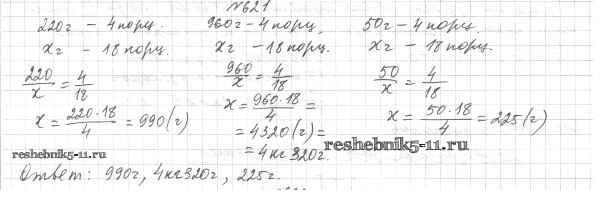 №621
220г - 4порц.
хг - 18порц.
220/х = 4/18
х = 220·18/4 = 990(г)
960г - 4порц.
хг - 18порц.
960/х = 4/18
х = 960·18/4 =
= 4320(г) =
= 4кг320г.
50г - 4порц.
хг - 18порц.
50/х = 4/18
х = 50·18/4 = 225(г)
reshebnik5-11.ru
reshebnik5-11.ru
Ответ: 990г, 4кг320г, 225г.